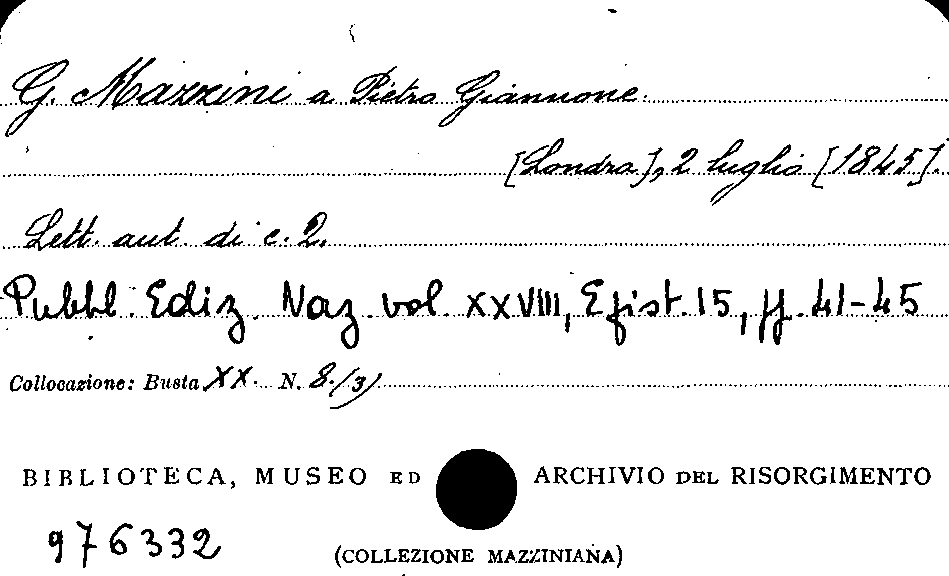 G. Mazzini a Pietro Giannone.
[Londra], 2 luglio [1845].
Lett. aut. di c. 2.
Pubbl. Ediz. Naz. vol. XXVIII, Epist. 15, pp. 41-45
Collocazione: Busta XX. N. 8./3)
BIBLIOTECA, MUSEO ED ARCHIVIO DEL RISORGIMENTO
976332
(COLLEZIONE MAZZINIANA)